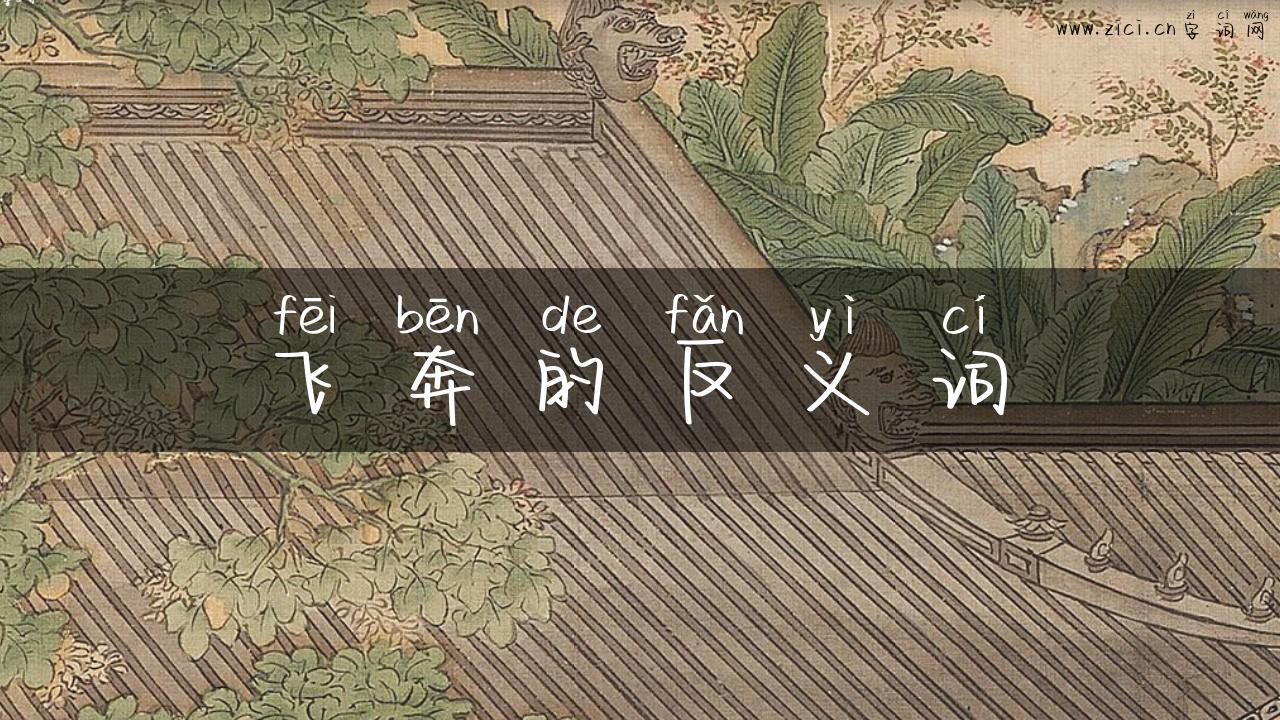 zì cí wǎng
www.zici.cn 字词网
fēi bēn de fǎn yì cí
飞奔的反义词